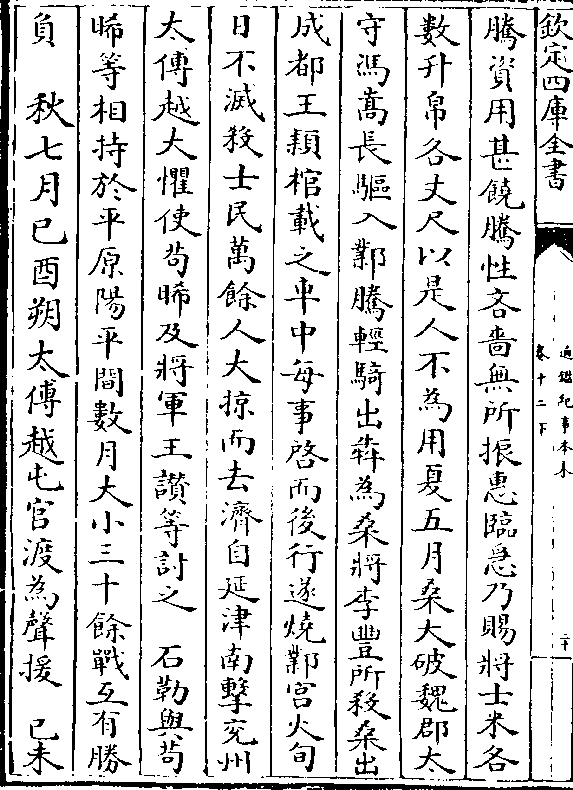 欽定四庫全書
通鑑紀事本末
卷十二下
騰資用甚饒騰性吝嗇無所振惠臨急乃賜將士米各
數升帛各丈尺以是人不為用夏五月桑大破魏郡太
守馮嵩長驅入鄴騰輕騎出犇為桑將李豐所殺桑出
成都王穎棺載之車中每事啓而後行遂燒鄴宮火旬
日不滅殺士民萬餘人大掠而去濟自延津南擊兖州
太傅越大懼使苟晞及將軍王讃等討之　石勒與苟
晞等相持於平原陽平間數月大小三十餘戰互有勝
負　秋七月己酉朔太傅越屯官渡為聲援　己未